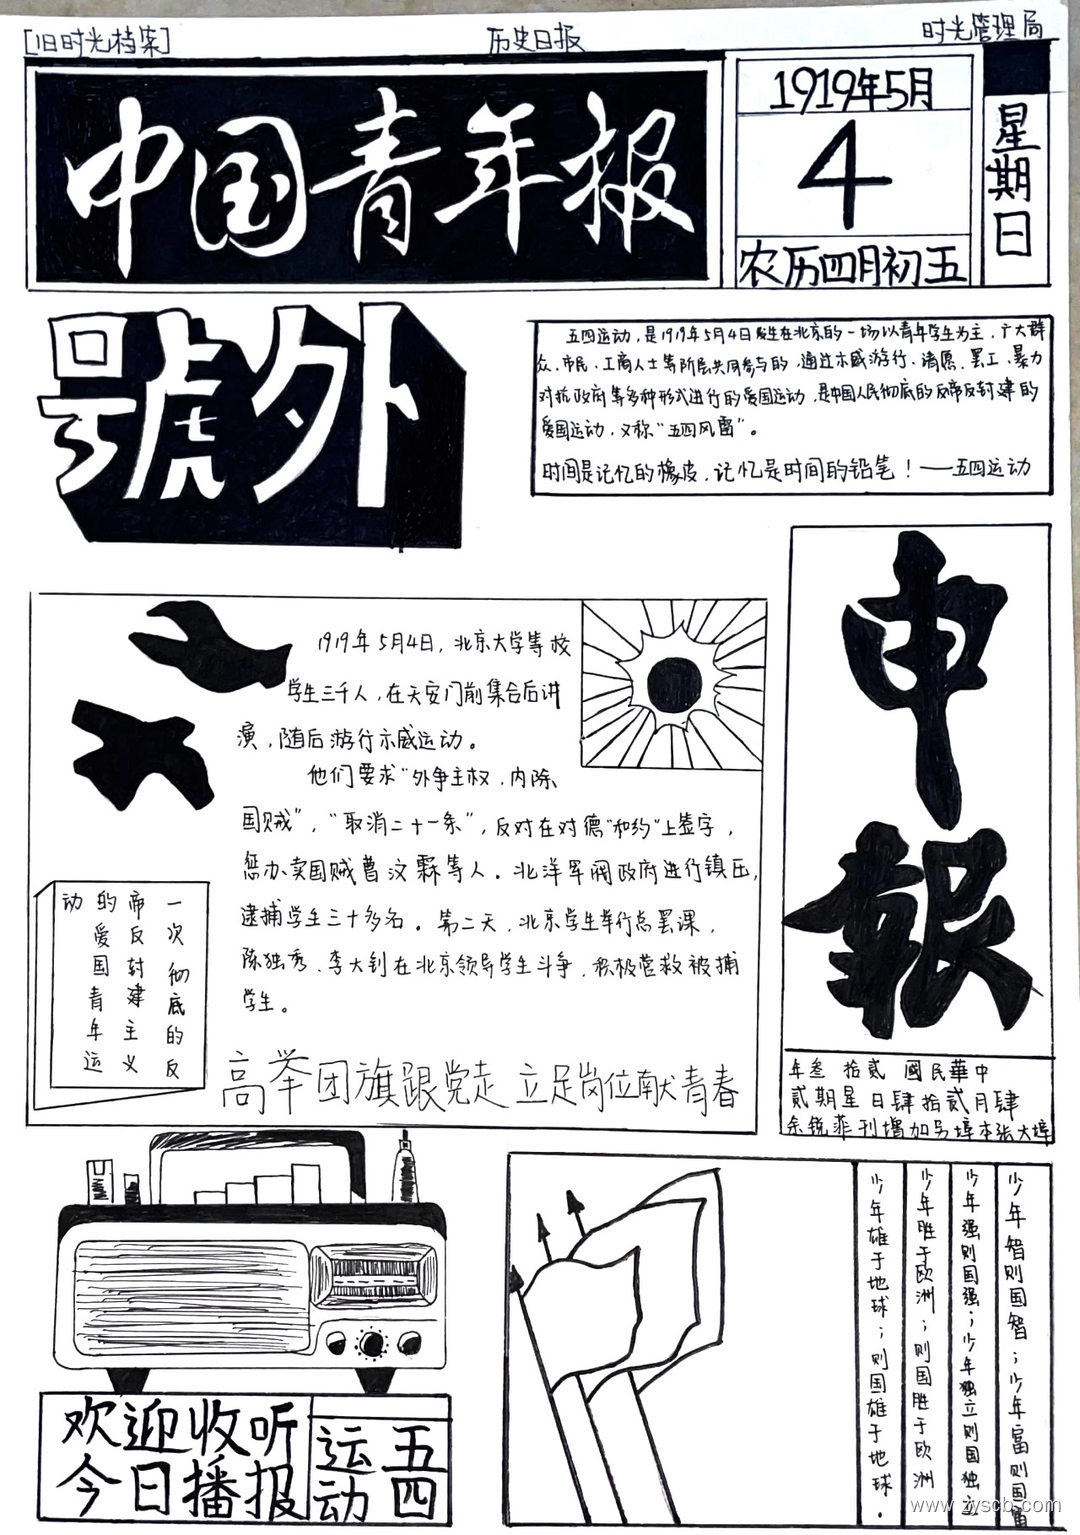 [旧时光档案]
历史日报
时光管理局
中国青年报
1919年5月
4
农历四月初五
星期日
號外
五四运动，是1919年5月4日发生在北京的一场以青年学生为主，广大群
众、市民、工商人士等阶层共同参与的，通过示威游行、请愿、罢工、暴力
对抗政府等多种形式进行的爱国运动，是中国人民彻底的反帝反封建的
爱国运动，又称“五四风雷”。
时间是记忆的橡皮，记忆是时间的铅笔！——五四运动
申報
年叁 拾贰 國民華中
贰期星日肆拾贰月肆
余锐菲刊增加另埠本张大埠
1919年5月4日，北京大学等校
学生三千人，在天安门前集合后讲
演，随后游行示威运动。
他们要求“外争主权，内除
国贼”，“取消二十一条”，反对在对德“和约”上签字，
惩办卖国贼曹汝霖等人。北洋军阀政府进行镇压，
逮捕学生三十多名。第二天，北京学生举行总罢课，
陈独秀、李大钊在北京领导学生斗争，积极营救被捕
学生。
一次彻底的反
帝反封建主义
的爱国青年运
动
高举团旗跟党走 立足岗位献青春
欢迎收听
今日播报
五四
运动
少年智则国智；少年富则国富
少年强则国强；少年独立则国独立
少年胜于欧洲；则国胜于欧洲
少年雄于地球；则国雄于地球.
www.zyscb.com